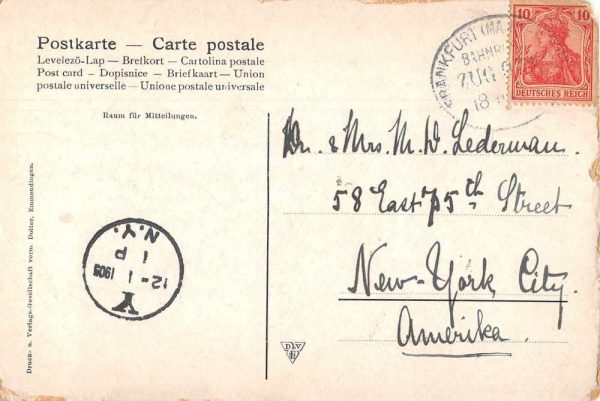 Postkarte — Carte postale
Levelezö-Lap — Brefkort — Cartolina postale
Post card — Dopisnice — Briefkaart — Union
postale universelle — Unione postale universale
Raum für Mitteilungen.
FRANKFURT (MA
BAHNP
ZUG
18
10 10
DEUTSCHES REICH
Dr. & Mrs. M. D. Lederman.
58 East 75th Street
New-York City.
Amerika.
N.Y.
1 P
12-1 1905
Y
D.L.V.
Druck- u. Verlags-Gesellschaft vorm. Dölter, Emmendingen.